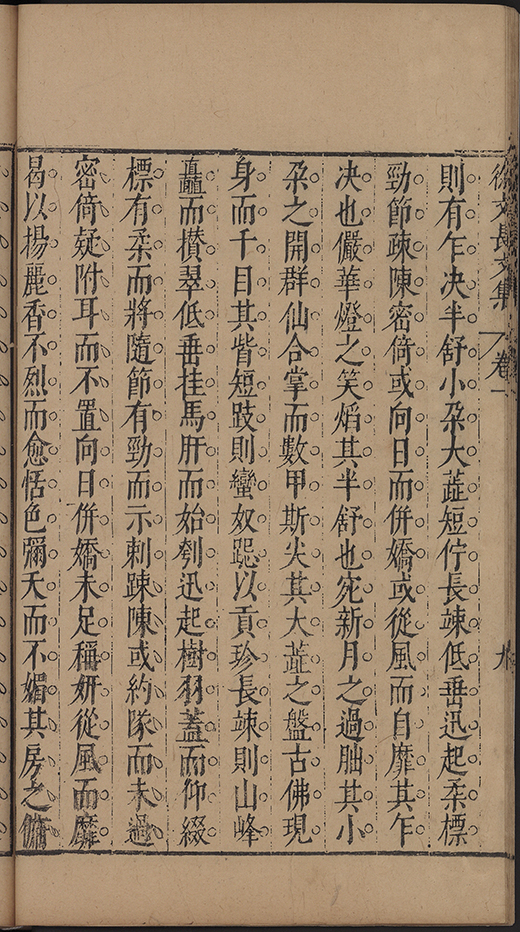 徐文長文集 卷一 九
則有乍决半舒小朶大蕋短佇長竦低垂迅起柔標
勁節疎陳密倚或向日而併嬌或從風而自靡其乍
决也儼華燈之笑焰其半舒也宛新月之過朏其小
朶之開群仙合掌而數甲斯尖其大蕋之盤古佛現
身而千目其眥短跂則蠻奴跽以貢珍長竦則山峰
矗而攅翠低垂挂馬肝而始刳迅起樹羽蓋而仰綴
標有柔而將隨節有勁而示刺踈陳或約隊而未過
密倚疑附耳而不置向日併嬌未足稱妍從風而靡
曷以揚麗香不烈而愈恬色彌夭而不媚其房之